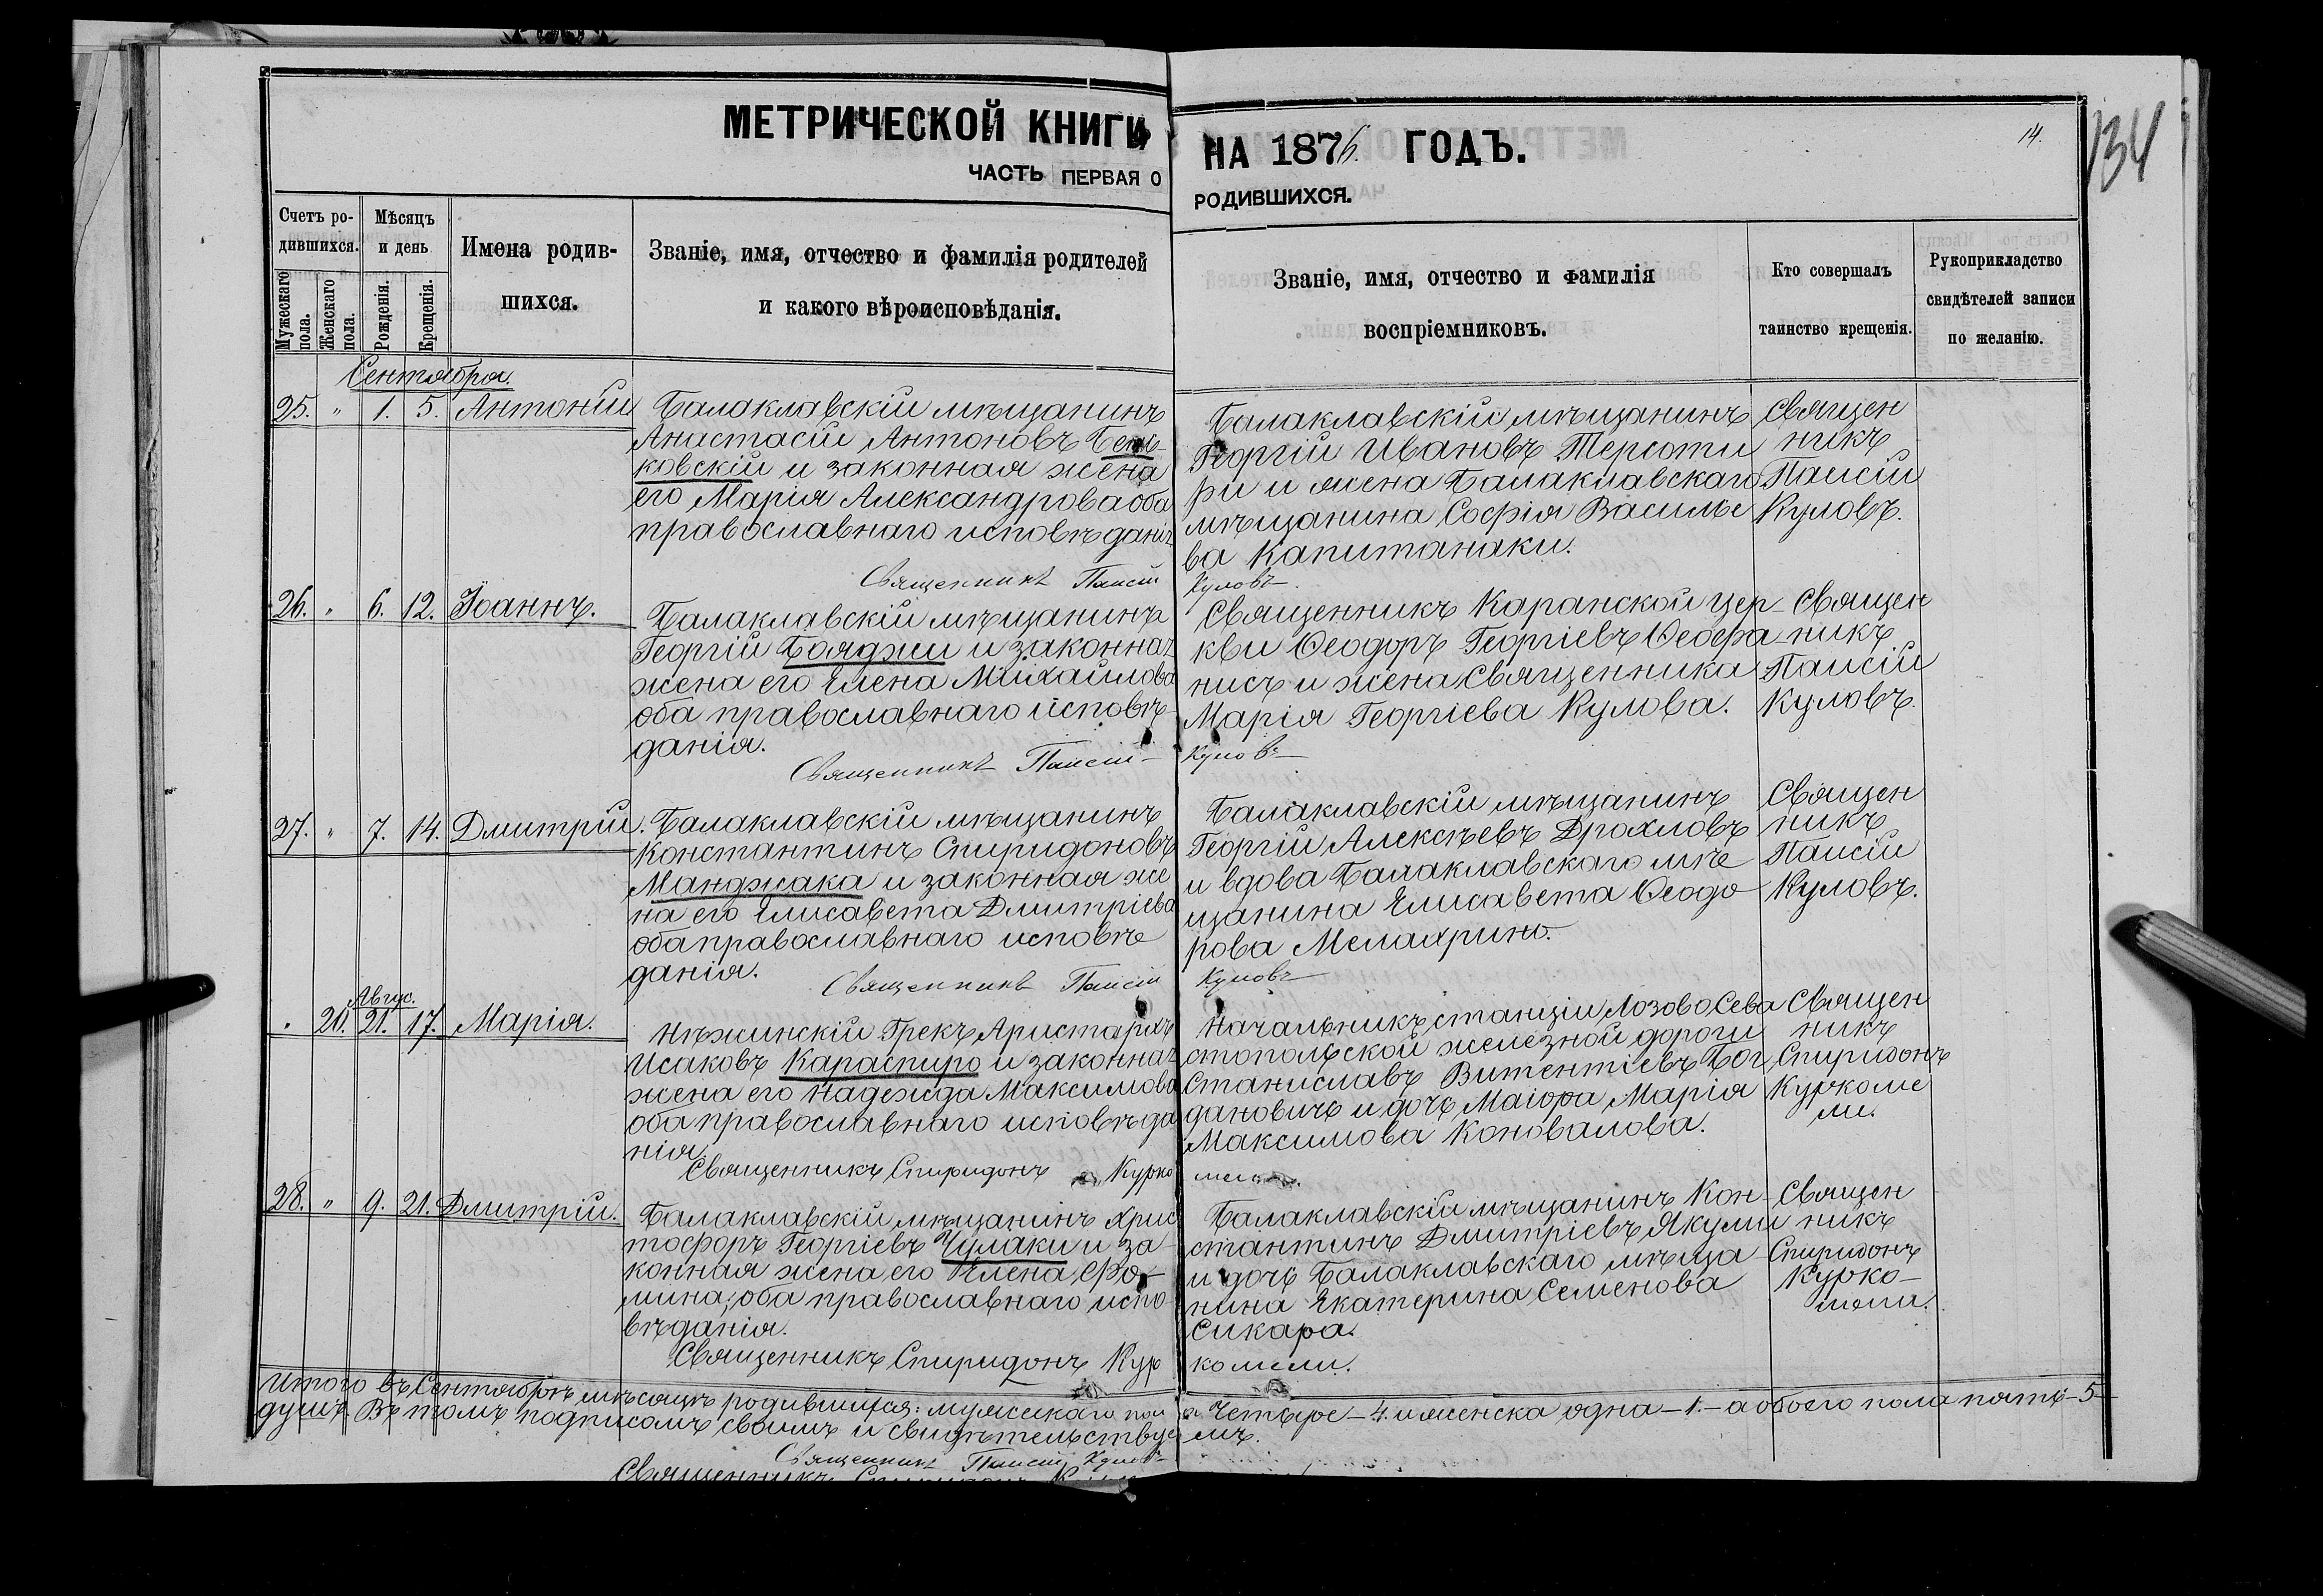 МЕТРИЧЕСКОЙ КНИГИ
ЧАСТЬ ПЕРВАЯ О
НА 1876. ГОДЪ.
РОДИВШИХСЯ.
14.
134
Счетъ ро-
дившихся.
Мужескаго пола.
Женскаго пола.
Мѣсяцъ
и день
Рожденія.
Крещенія.
Имена родив-
шихся.
Званіе, имя, отчество и фамилія родителей
и какого вѣроисповѣданія.
Званіе, имя, отчество и фамилія
воспріемниковъ.
Кто совершалъ
таинство крещенія.
Рукоприкладство
свидѣтелей записи
по желанію.
Сентября.
25. " 1. 5. Антоній
Балаклавскій мѣщанинъ
Анастасій Антоновъ
ковскій и законная жена
его Марія Александрова оба
православнаго исповѣданія
Священникъ Паисій Куловъ
Балаклавскій мѣщанинъ
Георгій Ивановъ Терсоти
ри и жена Балаклавскаго
мѣщанина Софія Василье
ва Капитанаки.
Священ
никъ
Паисій
Куловъ.
26. " 6. 12. Іоаннъ.
Балаклавскій мѣщанинъ
Георгій Бояджи и законная
жена его Елена Михайлова
оба православнаго исповѣ
данія.
Священникъ Паисій Куловъ
Священникъ Каранской цер
кви Ѳеодоръ Георгіевъ Ѳеофа
нисъ и жена Священника
Марія Георгіева Кулова.
Священ
никъ
Паисій
Куловъ.
27. " 7. 14. Дмитрій.
Балаклавскій мѣщанинъ
Константинъ Спиридоновъ
Манджака и законная же
на его Елисавета Дмитріева
оба православнаго исповѣ
данія.
Священникъ Паисій Куловъ
Балаклавскій мѣщанинъ
Георгій Алексѣевъ Драхловъ
и вдова Балаклавскаго мѣ
щанина Елисавета Ѳеодо
рова Мелахрино.
Священ
никъ
Паисій
Куловъ.
Авгус.
" 20. 21. 17. Марія.
Нѣжинскій Грекъ Аристархъ
Исаковъ Караспиро и законная
жена его Надежда Максимова
оба православнаго исповѣда
нія.
Священникъ Спиридонъ Курко мели
Начальникъ станціи Лозово Сева
стопольской железной дороги
Станиславъ Витентіевъ Бог
дановичъ и дочь Маіора Марія
Максимова Коновалова.
Священ
никъ
Спиридонъ
Куркоме
ли.
28. " 9. 21. Дмитрій.
Балаклавскій мѣщанинъ Хрис
тофоръ Георгіевъ Чулаки и за
конная жена его Елена Фо-
мина, оба православнаго испо
вѣданія.
Священникъ Спиридонъ Кур комели.
Балаклавскій мѣщанинъ Кон
стантинъ Дмитріевъ Якули
и дочь Балаклавскаго мѣща
нина Екатерина Семенова
Сикара.
Священ
никъ
Спиридонъ
Курко-
мели.
Итого въ Сентябрѣ мѣсяцѣ родившихся: мужскаго пола Четыре - 4. и женска одна - 1. - а обоего пола пять - 5 -
душъ. Въ томъ подписомъ своимъ и свидѣтельствуемъ.
Священникъ Паисій Куловъ
Священникъ